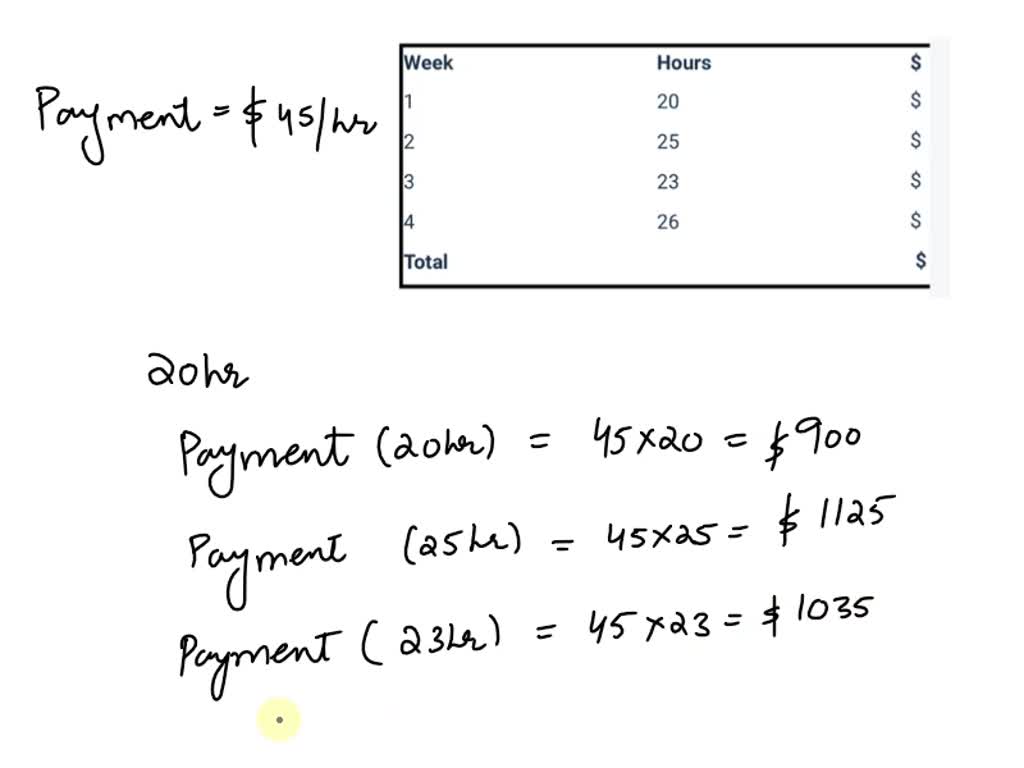 Payment = $ 45/hr
Week Hours $
1 20 $
2 25 $
3 23 $
4 26 $
Total $
20hr
Payment (20hr) = 45×20 = $900
Payment (25hr) = 45×25 = $ 1125
Payment (23hr) = 45×23 = $ 1035